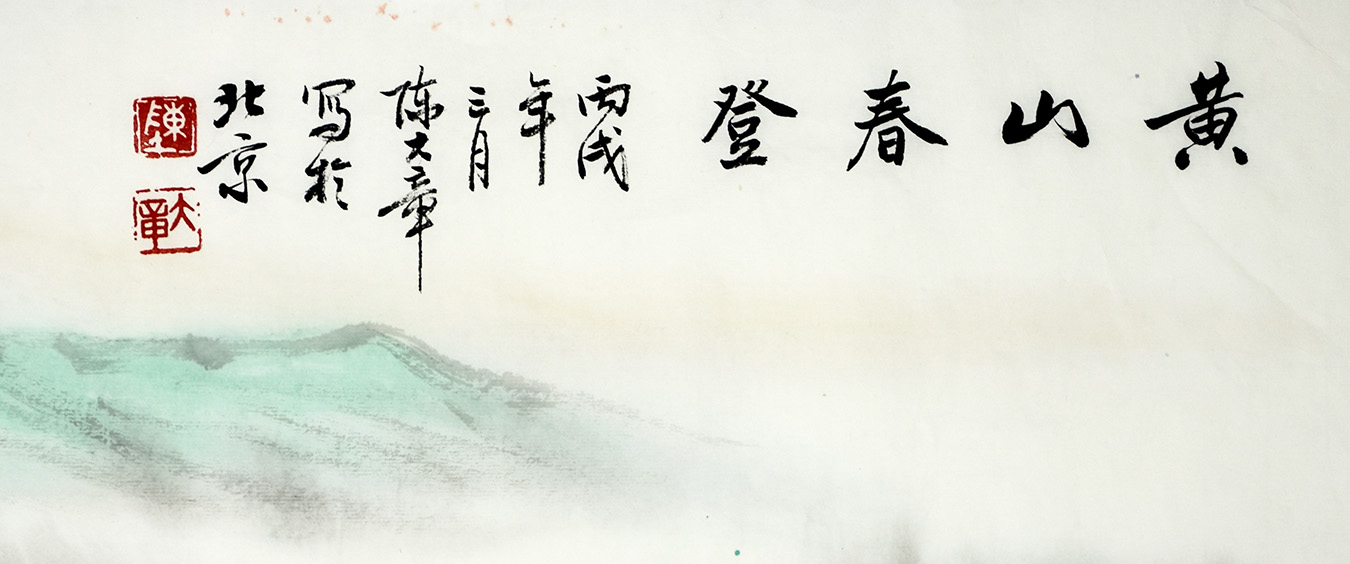 黄山春登
丙戌
年
三月
陈大章
写於
北京
陳
大章